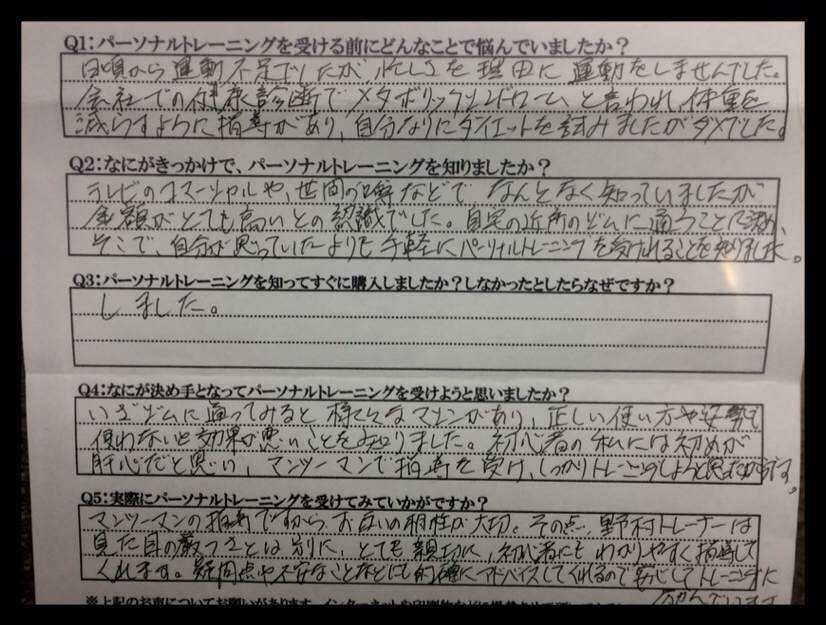 Q1:パーソナルトレーニングを受ける前にどんなことで悩んでいましたか？
日頃から運動不足でしたが忙しさを理由に運動をしませんでした。
会社での健康診断でメタボリックシンドローム、と言われ、体重を
減らすように指導があり、自分なりにダイエットを試みましたがダメでした。
Q2:なにがきっかけで、パーソナルトレーニングを知りましたか？
テレビのコマーシャルや、世間の噂などで なんとなく知っていましたが
金額がとても高いとの認識でした。自宅の近所のジムに通うことに決め、
そこで、自分が思っていたよりも手軽にパーソナルトレーニングを受けれることを知りました。
Q3:パーソナルトレーニングを知ってすぐに購入しましたか？しなかったとしたらなぜですか？
しました。
Q4:なにが決め手となってパーソナルトレーニングを受けようと思いましたか？
いざジムに通ってみると 様々なマシンがあり、正しい使い方や姿勢を
使わないと効果が悪いことを知りました。初心者の私には初めが
肝心だと思い、マンツーマンで指導を受け、しっかりトレーニングしようと思ったからです。
Q5:実際にパーソナルトレーニングを受けてみていかがですか？
マンツーマンの指導ですから、お互いの相性が大切。その点、野村トレーナーは
見た目の厳つさとは別に、とても親切に、初心者にもわかりやすく指導して
くれます。疑問点や不安なことなどにも的確にアドバイスしてくれるので安心してトレーニングに
※上記のお声についてお願いがあります。インターネットや印刷物などに掲載させて